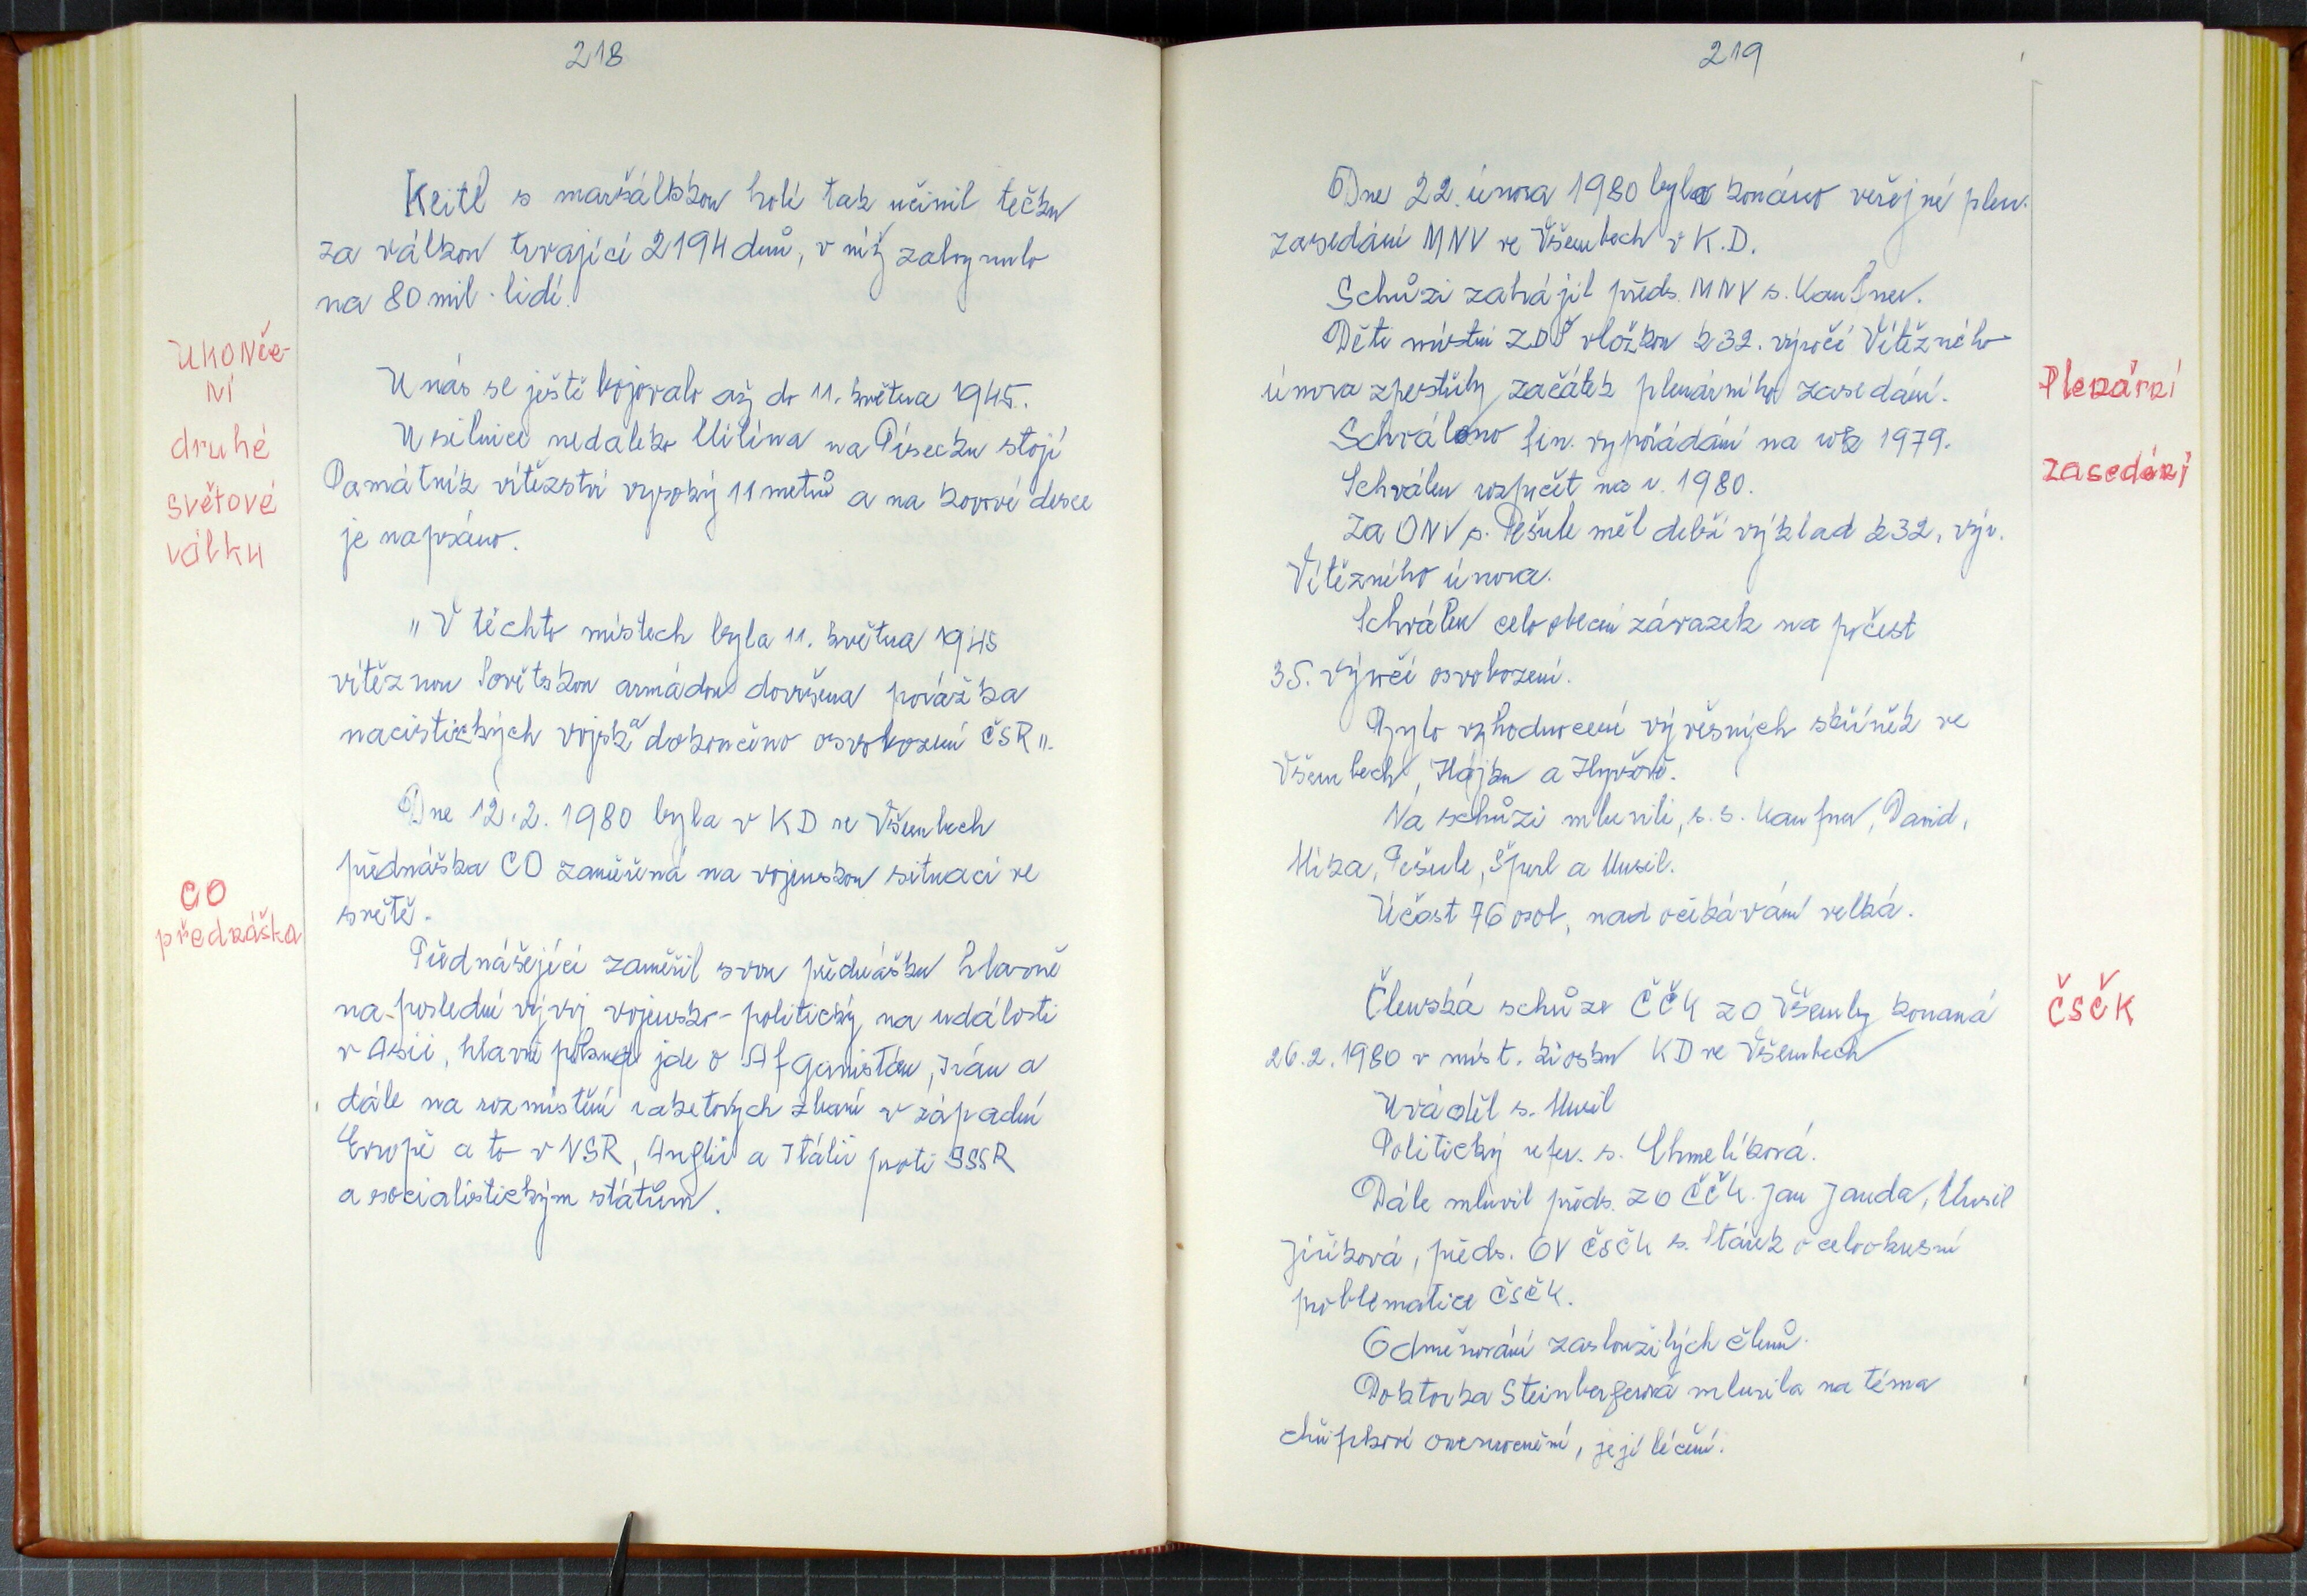 218
Keitl s maršálskou holí tak učinil tečku
za válkou trvající 2194 dnů, v níž zahynulo
na 80 mil. lidí.
UKONČE-
NÍ
druhé
světové
války
U nás se ještě bojovalo až do 11. května 1945.
U silnice nedaleko Milína na Písecku stojí
Památník vítězství vysoký 11 metrů a na kovové desce
je napsáno.
„V těchto místech byla 11. května 1945
vítěznou Sovětskou armádou dovršena porážka
nacistických vojsk a dokončeno osvobození ČSR".
Dne 12.2. 1980 byla v KD ve Všerubech
přednáška CO zaměřená na vojenskou situaci ve
světě.
CO
přednáška
Přednášející zaměřil svou přednášku hlavně
na poslední vývoj vojensko-politický na události
v Asii, hlavně pokud jde o Afganistán, Irán a
dále na rozmístění raketových zbraní v západní
Evropě a to v NSR, Anglii a Itálii proti SSSR
a socialistickým státům.
219
Dne 22. února 1980 bylo konáno veřejné plen.
zasedání MNV ve Všerubech v K.D.
Schůzi zahájil předs. MNV s. Kaufner.
Děti místní ZDŠ vložkou k 32. výročí Vítězného
února zpestřily začátek plenárního zasedání.
Plenární
zasedání
Schváleno fin. vypořádání na rok 1979.
Schválen rozpočet na r. 1980.
Za ONV s. Pešule měl delší výklad k 32. výr.
Vítězného února.
Schválen celoobecní závazek na počest
35. výročí osvobození.
Bylo vyhodnocení vývěsných skříněk ve
Všerubech, Hájku a Hyršově.
Na schůzi mluvili, s. s. Kaufner, David,
Mika, Pešule, Šperl a Musil.
Účast 76 osob, nad očekávání velká.
Členská schůze ČČK ZO Všeruby konaná
26.2. 1980 v míst. kiosku KD ve Všerubech
ČSČK
Uváděl s. Musil
Politický refer. s. Chmelíková.
Dále mluvil předs. ZO ČČK. Jan Janda, Musil
Jiříková, předs. OV ČSČK s. Stárek o celookresní
problematice ČSČK.
Odměňování zasloužilých členů.
Doktorka Steinbergerová mluvila na téma
chřipkové onemocnění, její léčení.